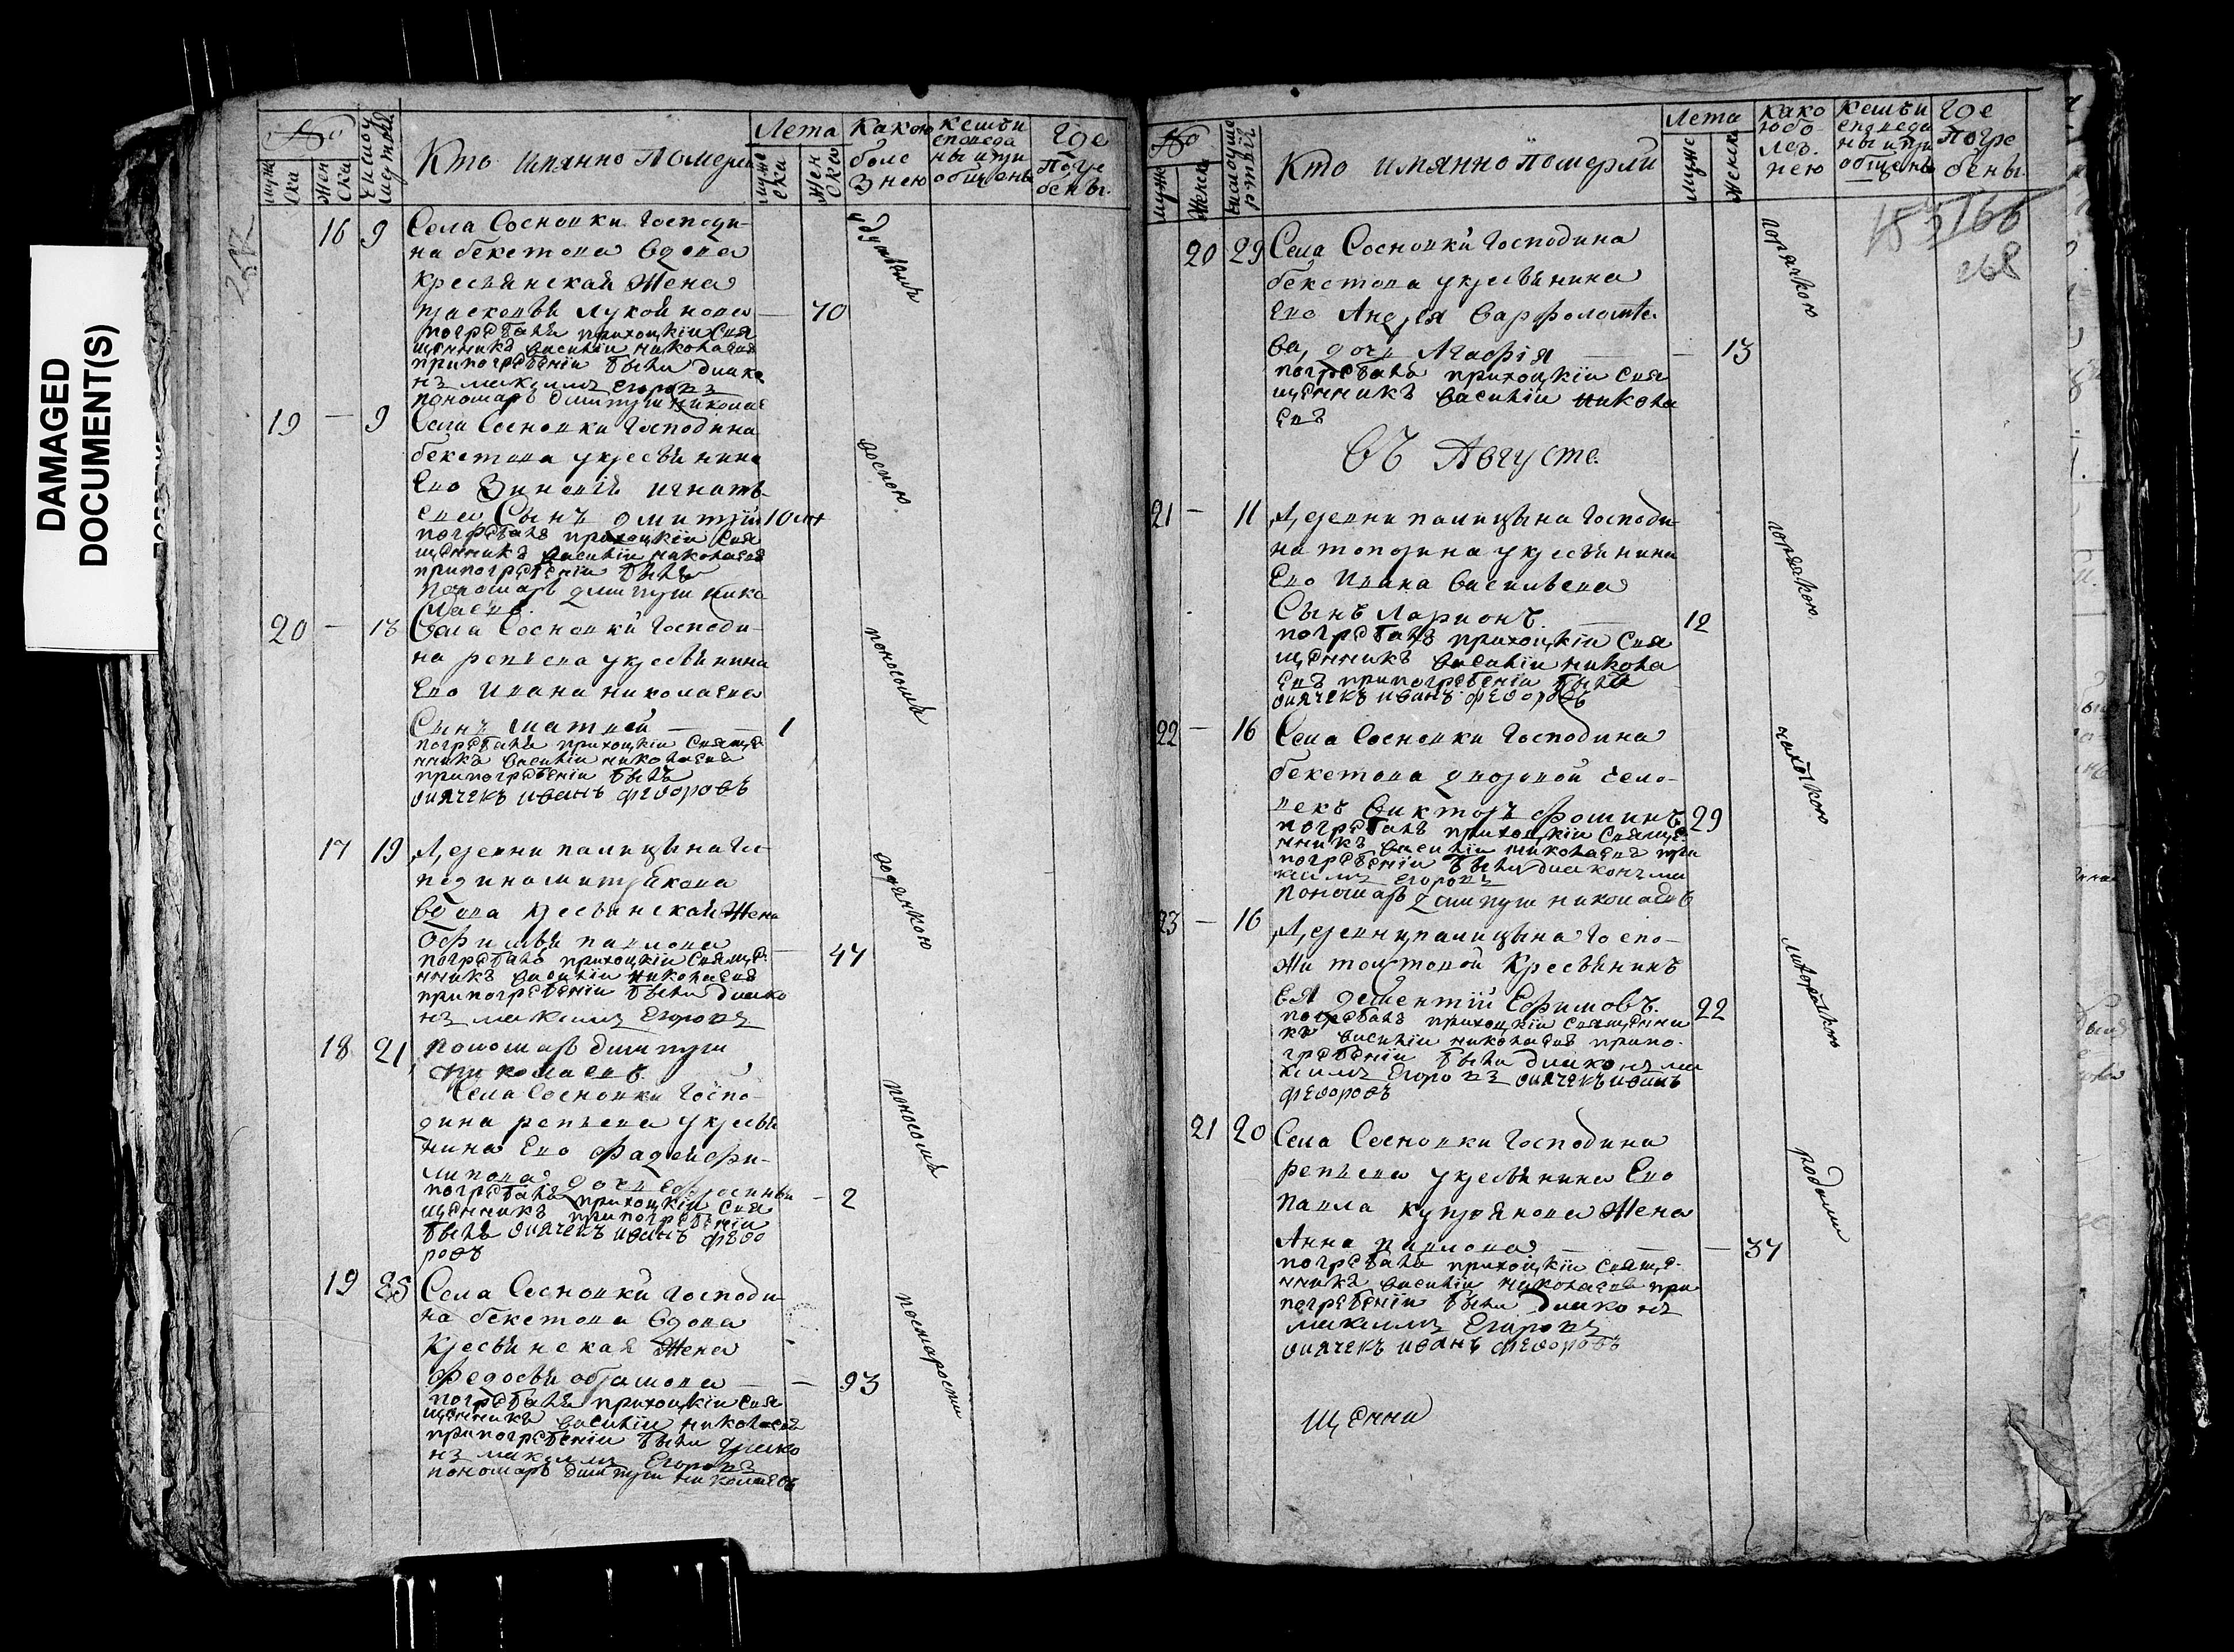 DAMAGED
DOCUMENT(S)
№
мужеска
женска
Кто имянно Померли
Лета
мужеска
женска
Какою
боле
знею
кемъ и
споведа
ны и при
общены
Где
Погре
бены.
16 9 Села Сосновки Господи-
на бекетова вдова
кресьянская Жена
прасковья Лукойнова — 70
погребалъ приходкіи свя
щенникъ василіи николаевъ
припогребеніи были дияко
нъ максимъ Егоровъ
пономарь дмитрии николае
удушьемъ
19 — 9 Села Сосновки Господина
бекетова у кресьянина
Ево Зиновія игнать-
ева Сынъ дмитрии 10
погребалъ приходкіи свя
щенникъ василіи николаевъ
припогребеніи былъ
пономарь дмитрии нико
лаевъ.
воспою
20 — 13 Села Сосновки Господи-
на репьева у кресьянина
Ево Ивана николаева
Сынъ матвей — — 1
погребалъ приходкіи свяще
нникъ василіи николаевъ
припогребеніи былъ
диячекъ иванъ федоровъ
поносомъ
17 19 Деревни палицына Го-
подина митрѣкова
вдова кресьянская Жена
Офимья павлова — 47
погребалъ приходкіи свяще
нникъ василіи николаевъ
припогребеніи были дияко
нъ максимъ Егоровъ
горячкою
18 21 пономарь дмитрии
николаевъ.
Села Сосновки Госпо-
дина репьева у кресья
нина Ево Фадей Фи-
липова дочь Ефросинья — 2
погребалъ приходкіи свя
щенникъ припогребеніи
былъ диячекъ иванъ федо
ровъ
поносомъ
19 25 Села Сосновки Господи-
на бекетова вдова
Кресьянская Жена
Федосья абрамова — — 93
погребалъ приходкіи свя
щенникъ василіи николаевъ
припогребеніи были дияко
нъ максимъ Егоровъ
пономарь дмитрии николаевъ
постарости
№
муже
женск
Кто имянно Померли
Лета
муже
женск
како
юбо
лез.
нею
кемъ и
споведа
ны и при
общены
Где
погре
бены.
166
268
20 29 Села Сосновки Господина
бекетова у кресьянина
Ево Андрея Варфоломѣе
ва, дочь Агафія — — 13
погребалъ приходкіи свя
щенникъ василіи никола
евъ
горячкою
Въ Августе.
21 — 11 Деревни палицына Господи-
на топорнина у кресьянина
Ево Ивана Васильева
Сынъ Ларионъ. — 12
погребалъ приходкіи свя
щенникъ василіи никола
евъ припогребеніи былъ
диячекъ иванъ федоровъ
горячкою
22 — 16 Села Сосновки Господина
бекетова дворовой чело-
векъ Викторъ Фоминъ 29
погребалъ приходкіи свяще
нникъ василіи николаевъ при
погребеніи были дияконъ ма
ксимъ Егоровъ
пономарь дмитрии николаевъ
чахоткою
23 — 16 Деревни палицына Госпо-
жи толстовой Кресьянинъ
Ея дементіи Ефимовъ. 22
погребалъ приходкіи священни
къ василіи николаевъ припо-
гребеніи были дияконъ ма
ксимъ Егоровъ диячекъ иванъ
федоровъ
лихорадкою
21 20 Села Сосновки Господина
репьева у кресьянина Ево
павла купрѣянова Жена
Анна павлова — — 37
погребалъ приходкіи свяще-
нникъ василіи николаевъ при
погребеніи были диако нъ
максимъ Егоровъ
диячекъ иванъ федоровъ
родами
щенни